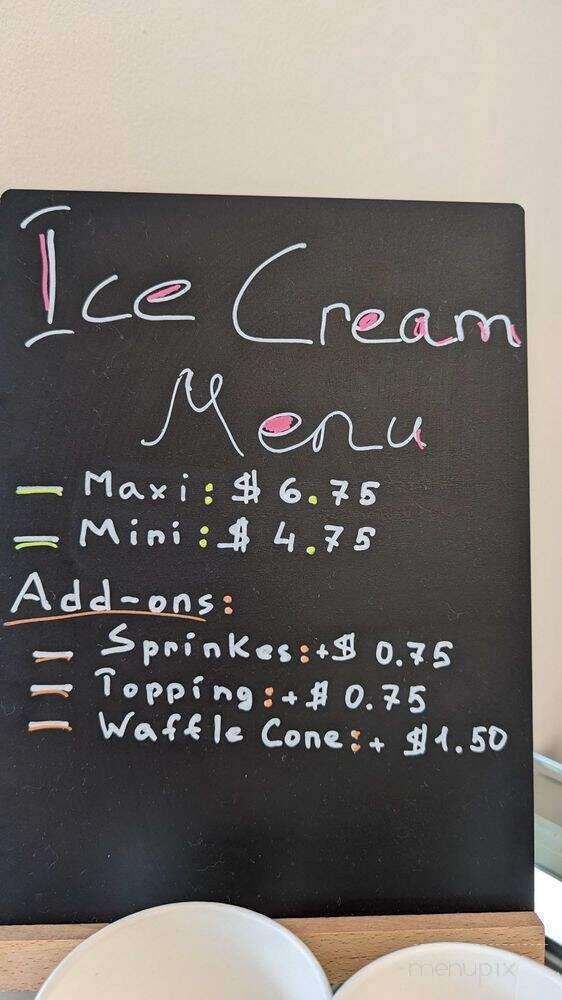 Ice Cream
Menu
— Maxi: $ 6.75
— Mini: $ 4.75
Add-ons:
— Sprinkes: +$ 0.75
— Topping: +$ 0.75
— Waffle Cone: + $1.50
menupix